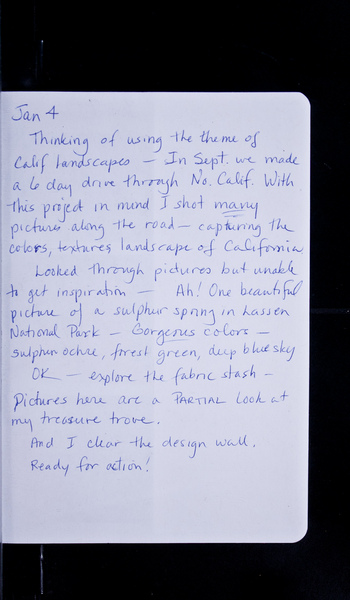 Jan 4
Thinking of using the theme of
Calif landscapes — In Sept. we made
a 6 day drive through No. Calif. With
this project in mind I shot many
pictures along the road — capturing the
colors, textures, landscape of California
Looked through pictures but unable
to get inspiration — Ah! One beautiful
picture of a sulphur spring in Lassen
National Park — Gorgeous colors —
sulphur ochre, forest green, deep blue sky
OK — explore the fabric stash —
Pictures here are a PARTIAL look at
my treasure trove.
And I clear the design wall.
Ready for action!